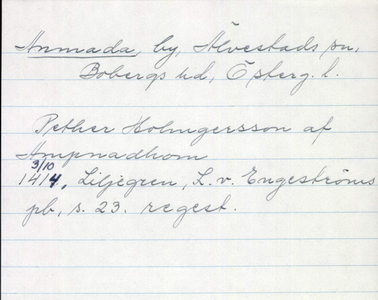 Anmada, by, Älvestads sn,
Bobergs hd, Österg. l.
Pether Holmgersson af
Ampnadhom
3/10
1414, Liljegren, L. v. Engeströms
pb, s. 23. regest.